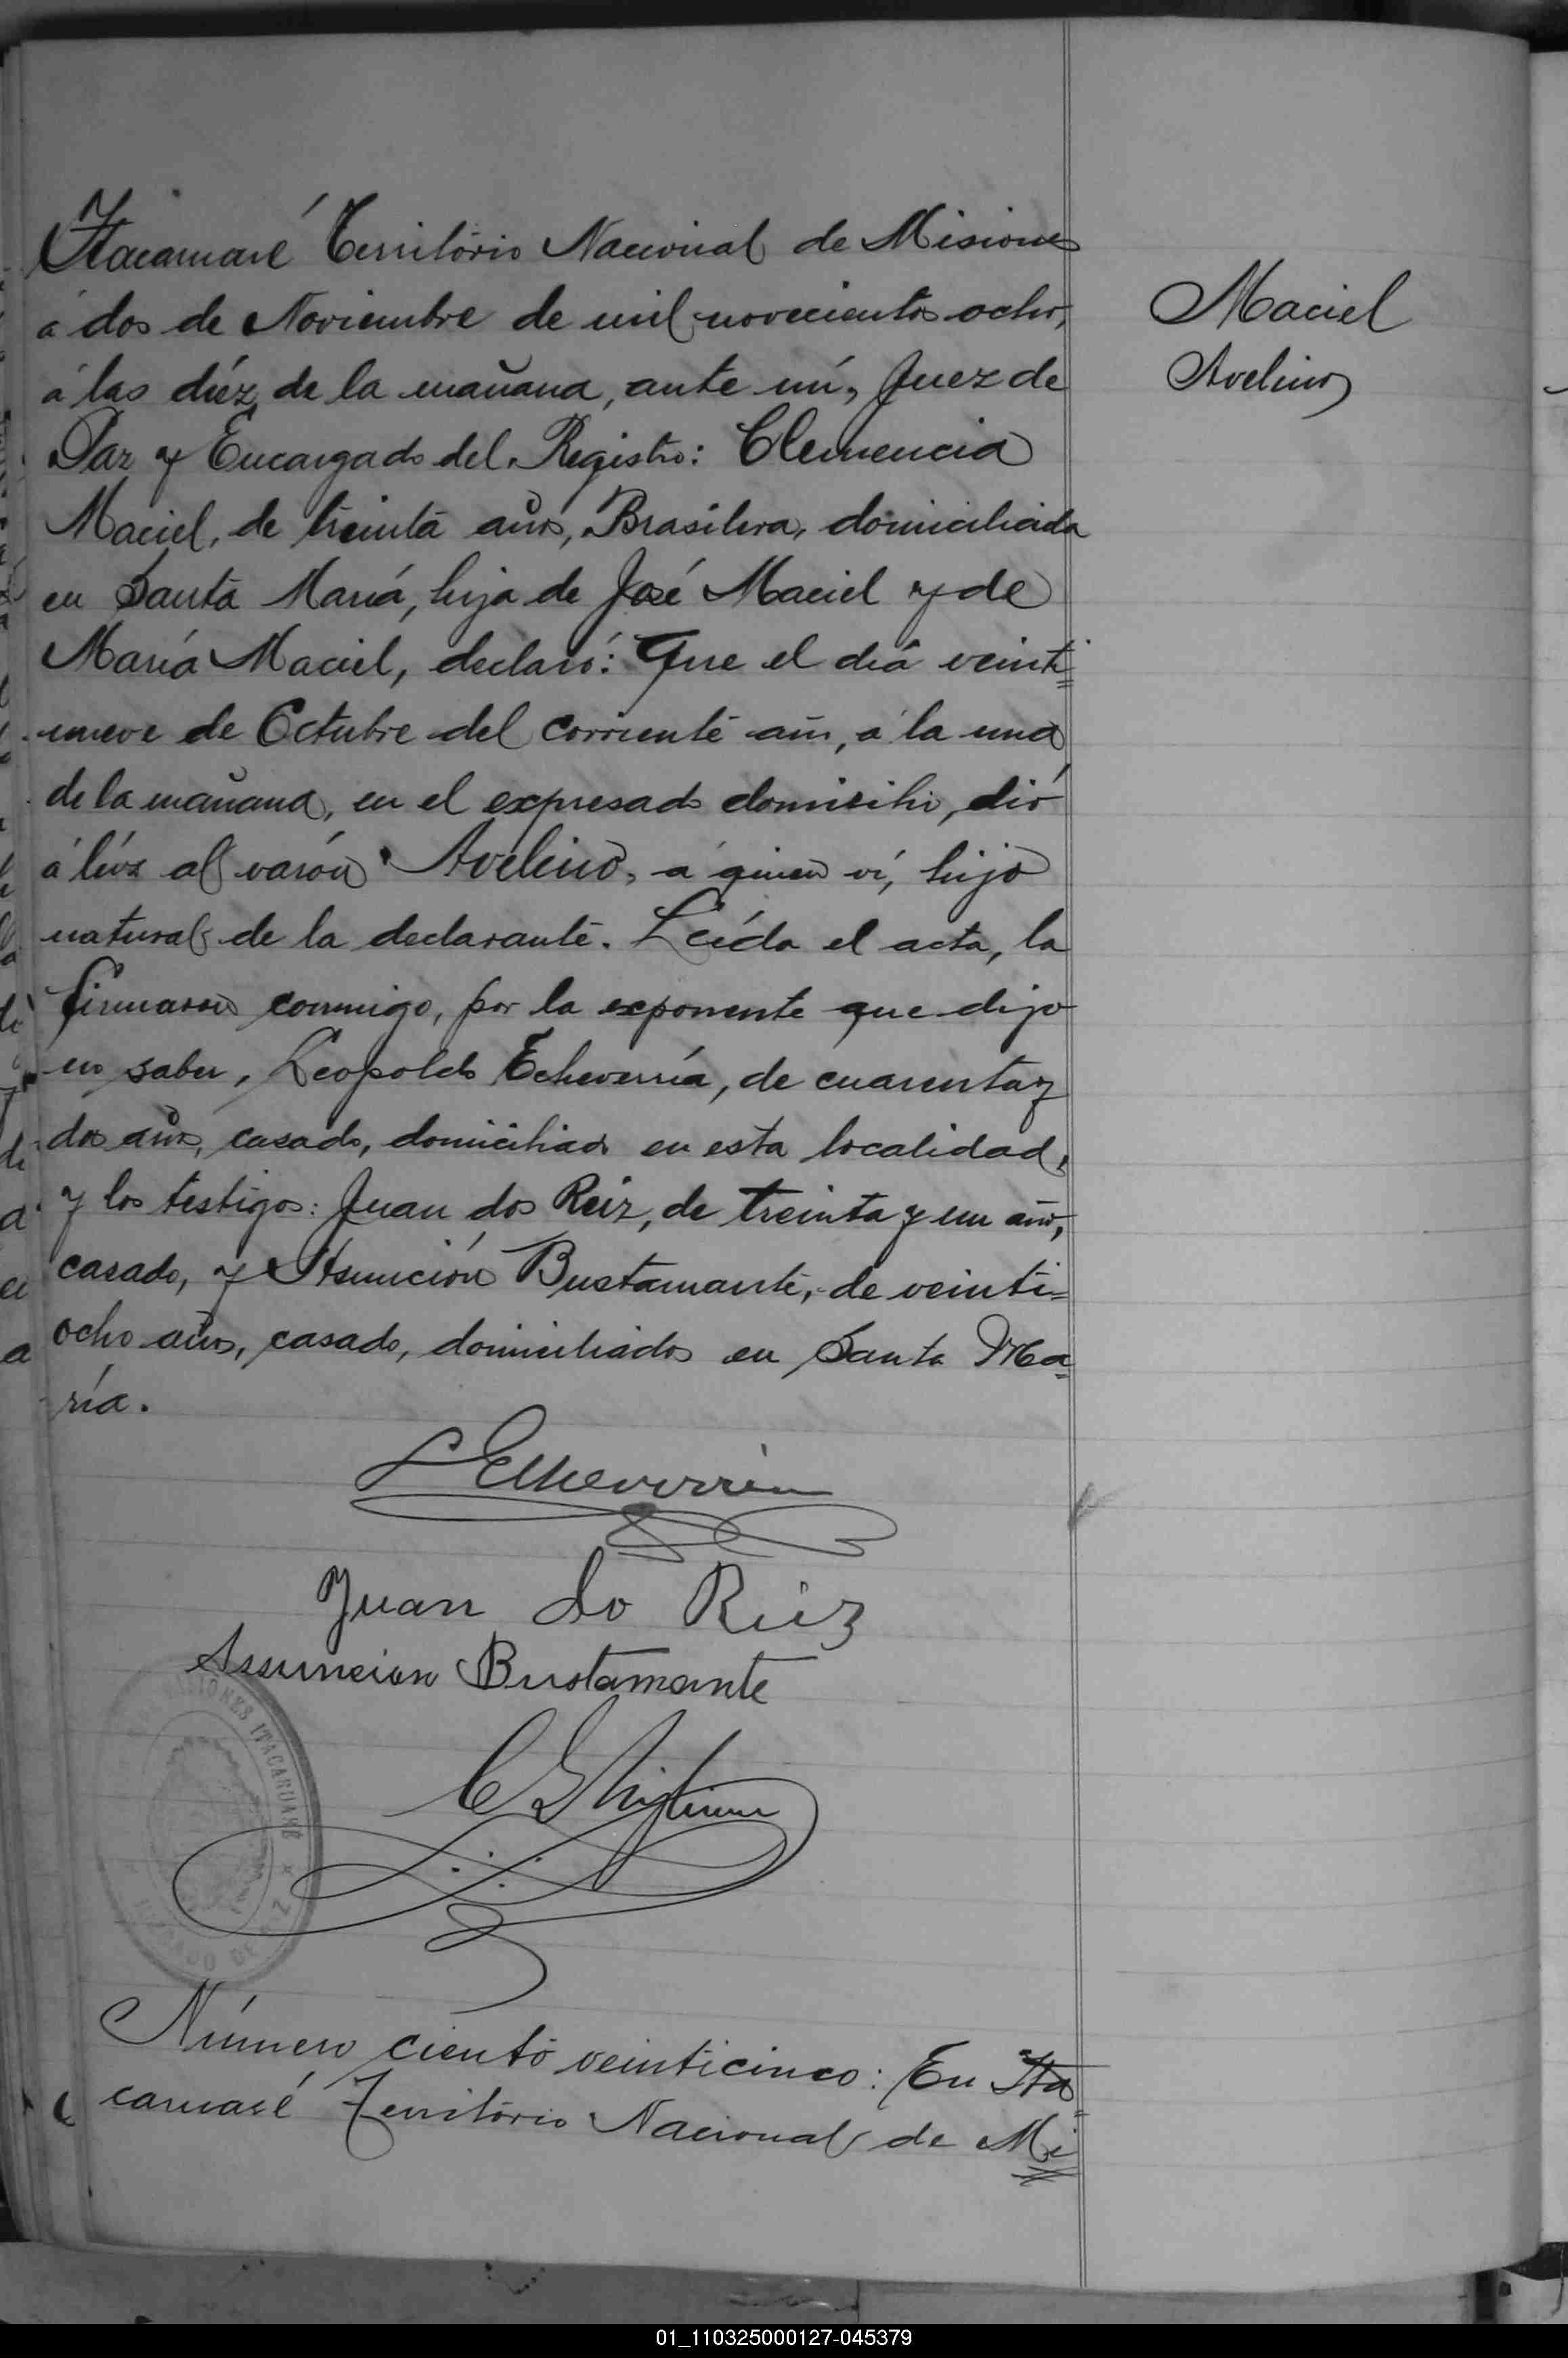 Itacaruaré Territorio Nacional de Misiones
á dos de Noviembre de mil novecientos ocho,
á las diéz de la mañana, ante mí, Juez de
Paz y Encargado del Registro: Clemencia
Maciel, de treinta años, Brasilera, domiciliada
en Santa María, hija de José Maciel y de
María Maciel, declaró: Que el día veinti=
nueve de Octubre del corriente año, á la una
de la mañana, en el expresado domicilio, dió
á lúz al varón Avelino, a quien ví, hijo
natural de la declarante. Leída el acta, la
firmaron conmigo, por la exponente que dijo
no saber, Leopoldo Echeverría, de cuarenta y
dos años, casado, domiciliado en esta localidad,
y los testigos: Juan dos Reiz, de treinta y un año,
casado, y Asunción Bustamante, de veinti=
ocho años, casado, domiciliados en Santa Ma=
ría.
Maciel
Avelino
L Echeverria
Juan do Reiz
Assuncion Bustamante
MISIONES ITACARUARÉ
JUZGADO DE PAZ
Número ciento veinticinco: En Ita=
caruaré Territorio Nacional de Mi=
01_110325000127-045379